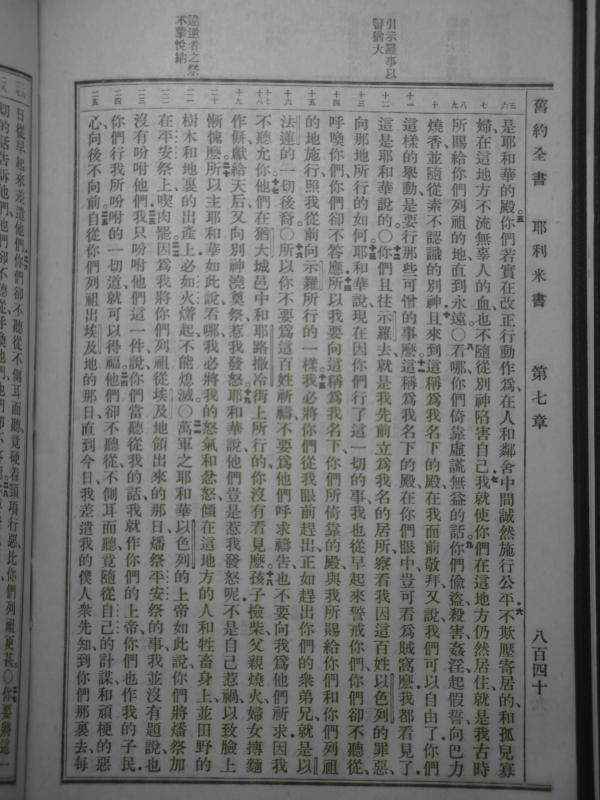 舊約全書　耶利米書　第七章　八百四十
引示羅事以
警猶大
違逆者之祭
不蒙悅納
是耶和華的殿你們若實在改正行動作爲在人和鄰舍中間誠然施行公平不欺壓寄居的和孤兒寡
婦在這地方不流無辜人的血也不隨從別神陷害自己我就使你們在這地方仍然居住就是我古時
所賜給你們列祖的地直到永遠〇看哪你們倚靠虛謊無益的話你們偷盜殺害姦淫起假誓向巴力
燒香並隨從素不認識的別神且來到這稱爲我名下的殿在我面前敬拜又說我們可以自由了你們
這樣的舉動是要行那些可憎的事麽這稱爲我名下的殿在你們眼中豈可看爲賊窩麽我都看見了
這是耶和華說的〇你們且往示羅去就是我先前立爲我名的居所察看我因這百姓以色列的罪惡
向那地所行的如何耶和華說現在因你們行了這一切的事我也從早起來警戒你們你們卻不聽從
呼喚你們你們卻不答應所以我要向這稱爲我名下你們所倚靠的殿與我所賜給你們和你們列祖
的地施行照我從前向示羅所行的一樣我必將你們從我眼前趕出正如趕出你們的衆弟兄就是以
法蓮的一切後裔〇所以你不要爲這百姓祈禱不要爲他們呼求禱告也不要向我爲他們祈求因我
不聽允你他們在猶大城邑中和耶路撒冷街上所行的你沒有看見麽孩子撿柴父親燒火婦女摶麵
作餅獻給天后又向別神澆奠祭惹我發怒耶和華說他們豈是惹我發怒呢不是自己惹禍以致臉上
慚愧麽所以主耶和華如此說看哪我必將我的怒氣和忿怒傾在這地方的人和牲畜身上並田野的
樹木和地裏的出產上必如火𤏲起不能熄滅〇萬軍之耶和華以色列的上帝如此說你們將燔祭加
在平安祭上喫肉罷因爲我將你們列祖從埃及地領出來的那日燔祭平安祭的事我並沒有題說也
沒有吩咐他們我只吩咐他們這一件說你們當聽從我的話我就作你們的上帝你們也作我的子民
你們行我所吩咐的一切道就可以得福他們卻不聽從不側耳而聽竟隨從自己的計謀和頑梗的惡
心向後不向前自從你們列祖出埃及地的那日直到今日我差遣我的僕人衆先知到你們那裏去每
日從早起來差遣他們你們卻不聽從不側耳而聽竟硬着頸項行惡比你們列祖更甚〇你要將這一
切的話告訴他們他們卻不聽從呼喚他們他們卻不